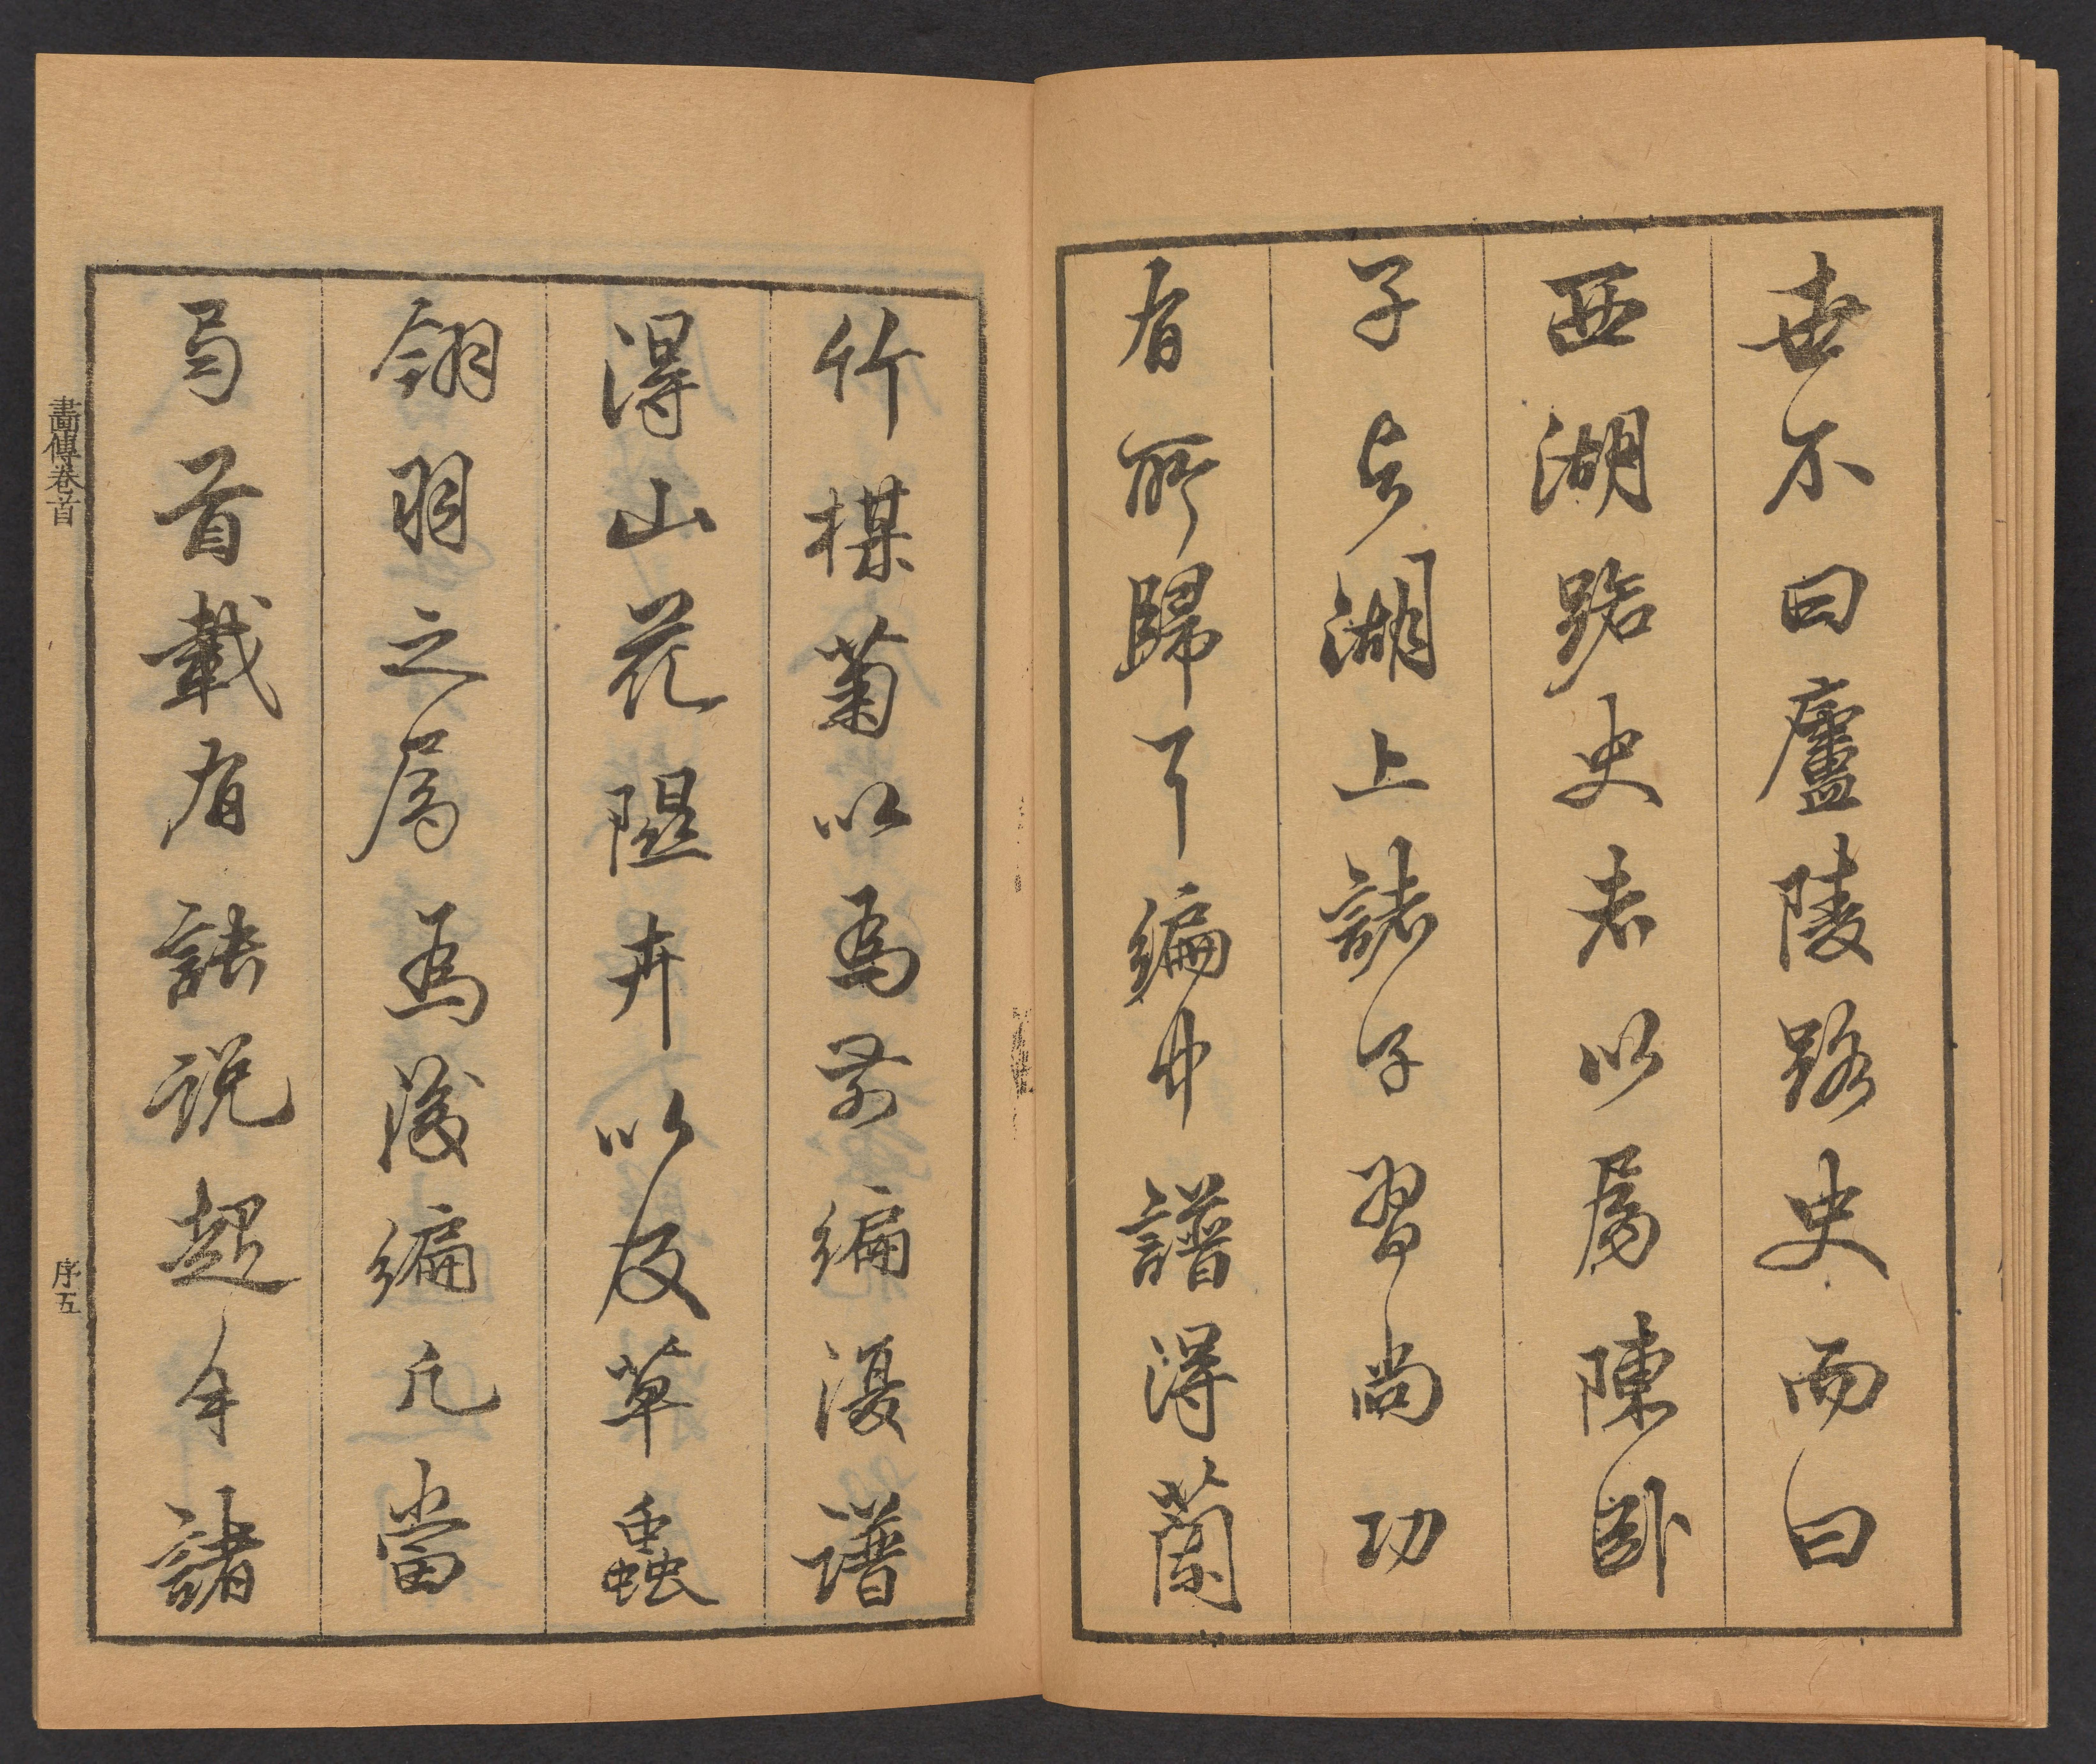 世不曰廬陵路史而曰
西湖路史者以屬陳卧
子與湖上諸子習尚功
有所歸耳編中譜得蘭
竹楳菊以爲前編復譜
得山花隰卉以及草蟲
翎羽之屬爲後編凡當
局首載有訣說起手諸
畫傳卷首
序五